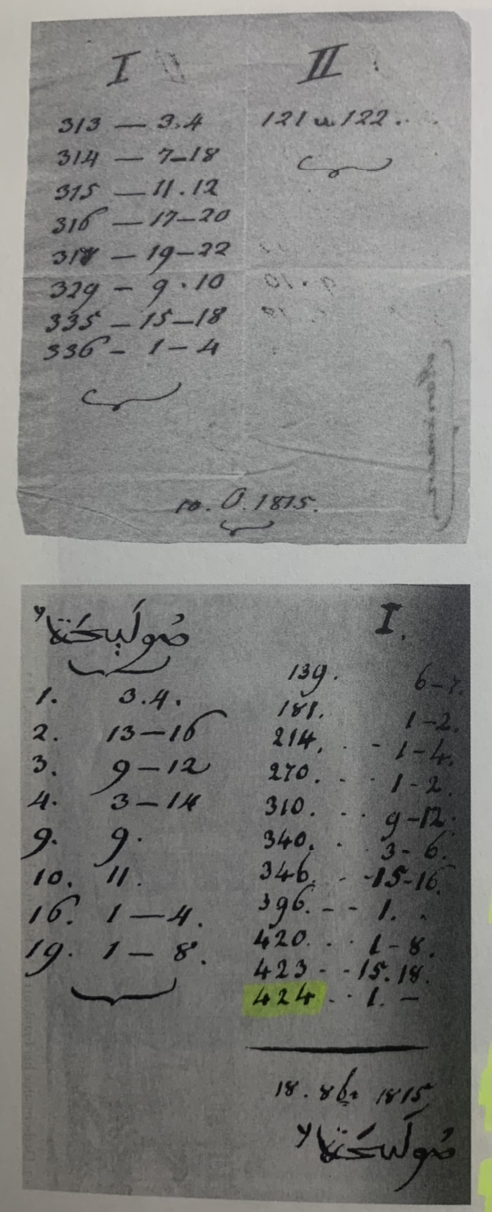 I
313 — 3.4
314 — 7–18
315 — 11.12
316 — 17–20
318 — 19–22
329 – 9.10
335 – 15–18
336 – 1–4
II
121 u. 122.
10. O. 1815.
1. 3.4.
2. 13–16
3. 9–12
4. 3–14
9. 9.
10. 11.
16. 1—4.
19. 1—8.
I.
139. 6–7.
181. 1–2.
214. 1–4.
270. 1–2.
310. 9–12.
340. 3–6.
346. 15–16.
396. 1.
420. 1–8.
423 15.18.
424 1. –
18. 8br 1815